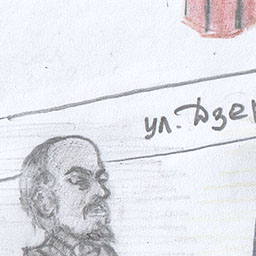 ул. Дзе